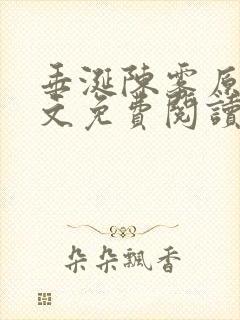 垂涎陳霧原
文免費閱讀
朵朵飄香